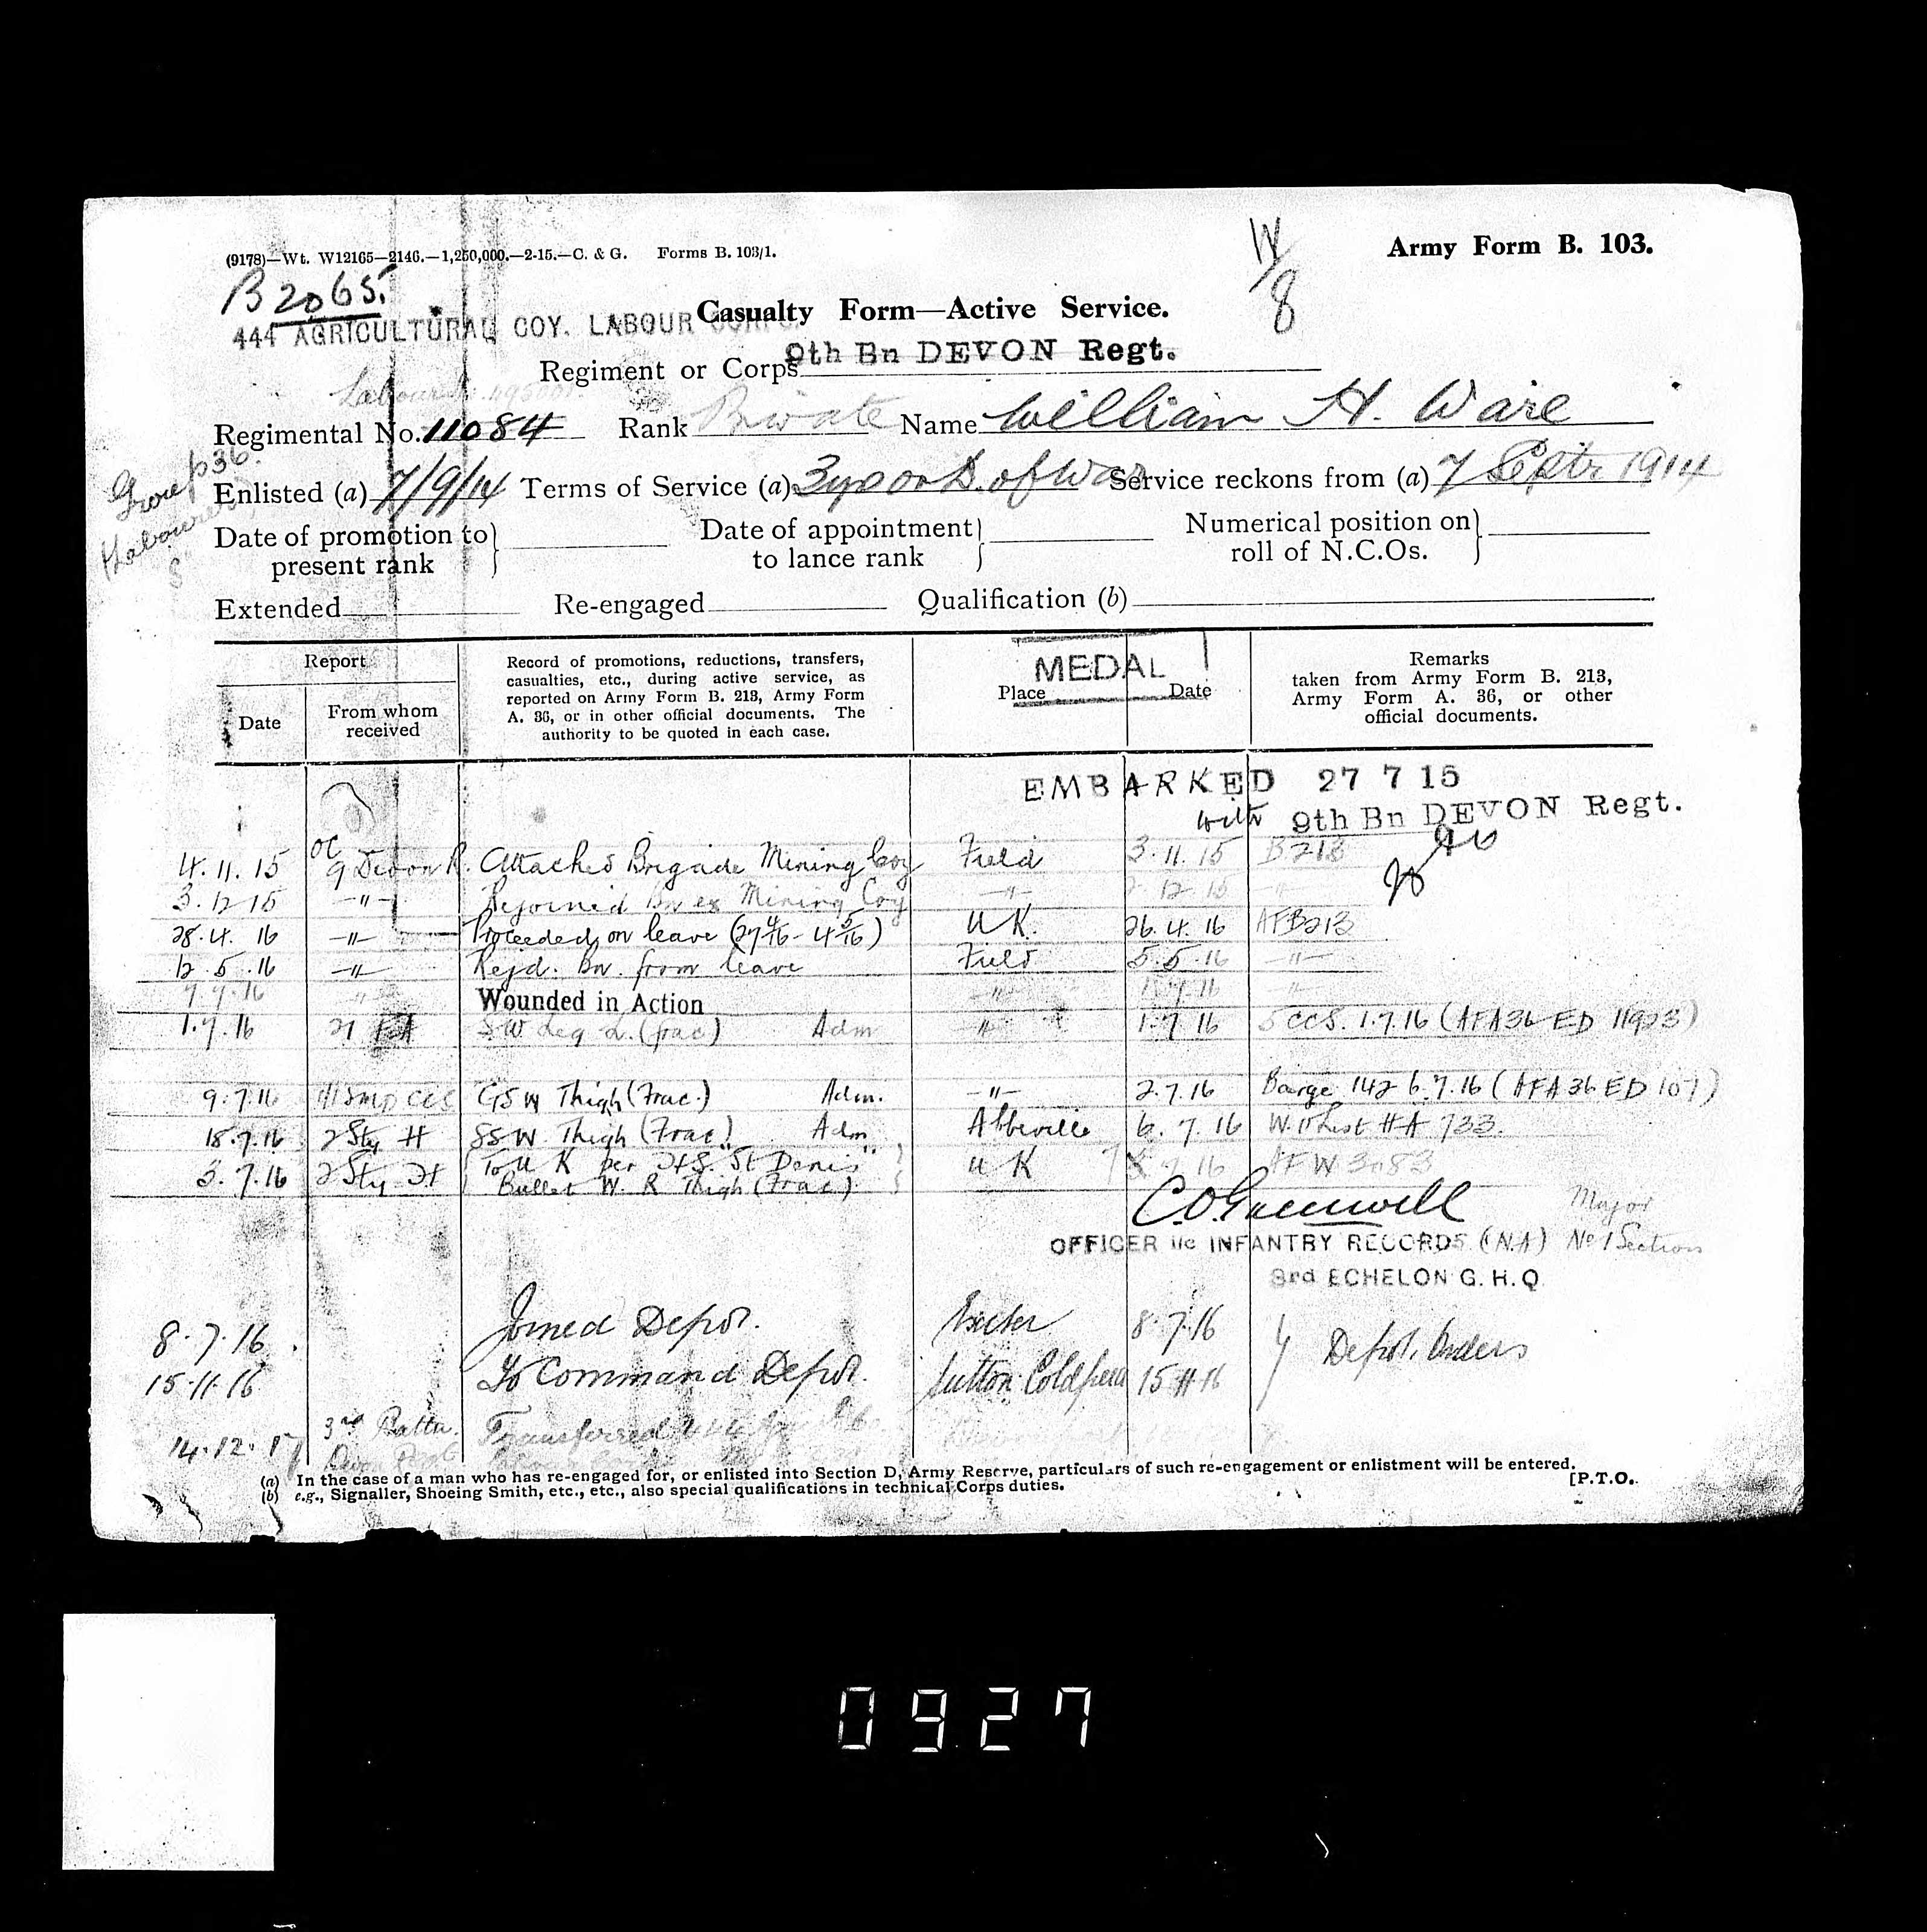 (9178)—Wt. W12165—2146.—1,250,000.—2-15.—C. & G. Forms B. 103/1.
Army Form B. 103.
W/8
B 2065.
Casualty Form—Active Service.
444 AGRICULTURAL COY. LABOUR CORPS.
9th Bn DEVON Regt.
Regiment or Corps
Labour
Regimental No. 11084 Rank Private Name William H. Ware
Group 36.
Enlisted (a) 7/9/14 Terms of Service (a) Service reckons from (a) 7 Septr 1914
Labourer
Date of promotion to present rank
Date of appointment to lance rank
Numerical position on roll of N.C.Os.
Extended Re-engaged Qualification (b)
Report
Date
From whom received
Record of promotions, reductions, transfers,
casualties, etc., during active service, as
reported on Army Form B. 213, Army Form
A. 36, or in other official documents. The
authority to be quoted in each case.
MEDAL
Place Date
Remarks
taken from Army Form B. 213,
Army Form A. 36, or other
official documents.
EMBARKED 27 7 15
with 9th Bn DEVON Regt.
4.11.15 OC 9 Devon R. Attached Brigade Mining Coy Field 3.11.15 B213
3.12.15 -"- Rejoined Bn ex Mining Coy -"- 2.12.15 -"-
28.4.16 -"- Proceeded on leave (27/4/16 - 4/5/16) UK. 26.4.16 AFB213
12.5.16 -"- Rejd. Bn. from leave Field 5.5.16 -"-
Wounded in Action -"-
1.7.16 21 FA SW Leg L. (frac) Adm " 1.7.16 5 CCS. 1.7.16 (AFA36 ED 11923)
9.7.16 GSW Thigh (Frac.) Adm. -"- 2.7.16 Barge 142 6.7.16 (AFA36 ED 107)
18.7.16 2 Sty H SSW Thigh (Frac) Adm Abbeville 6.7.16 733.
2 Sty H To UK per HS. "St Denis" UK AFW 3083
Bullet W. R Thigh (Frac)
Major
OFFICER i/c INFANTRY RECORDS (N.A) No 1 Section
3rd ECHELON G. H. Q.
8.7.16 Joined Depot. Exeter 8.7.16
Depot. Orders
15.11.16 To Command Depot. Sutton Coldfield 15.11.16
14.12.17 3rd Battn. Transferred 444
Devon Regt
(a) In the case of a man who has re-engaged for, or enlisted into Section D, Army Reserve, particulars of such re-engagement or enlistment will be entered.
(b) e.g., Signaller, Shoeing Smith, etc., etc., also special qualifications in technical Corps duties.
[P.T.O.
0927